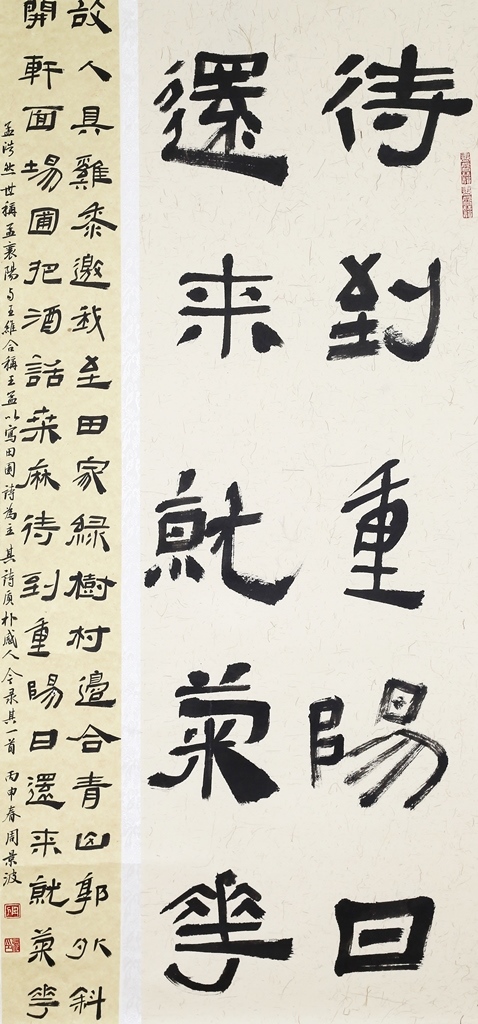 待到重陽日
還来就菊花
故人具雞黍邀我至田家緑樹村邊合青山郭外斜
開軒面場圃把酒話桑麻待到重陽日還来就菊花
孟浩然世稱孟襄陽与王維合稱王孟以寫田園詩為主其詩质朴感人今录其一首丙申春周景波